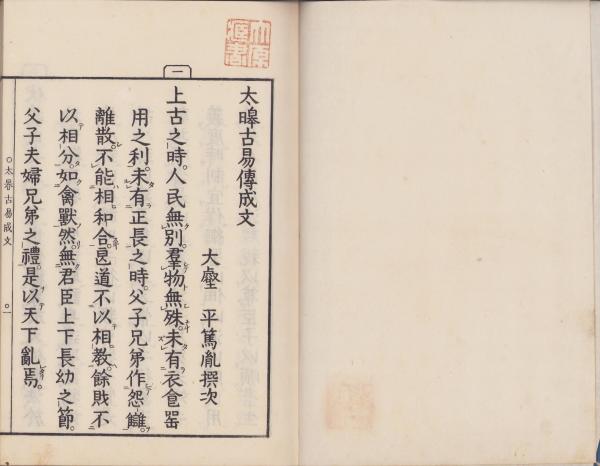 太皞古易傳成文
大壑 平篤胤撰次
一
上古之時。人民無別。羣物無殊。未有衣食器
用之利。未有正長之時。父子兄弟作怨讎。
離散不能相和合。邑道不以相教。餘財不
以相分。如禽獸然。無君臣上下長幼之節。
父子夫婦兄弟之禮。是以天下亂焉。
○太暭古易成文
○一